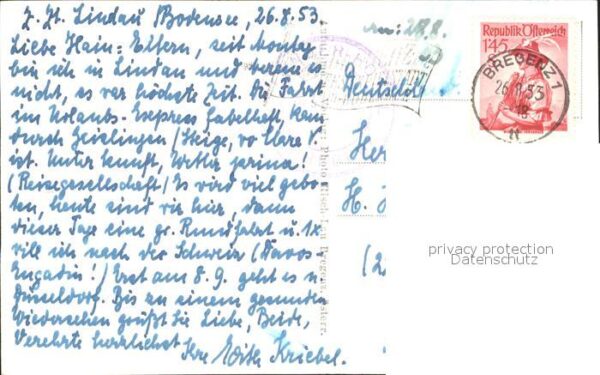 z. Zt. Lindau/Bodensee, 26.8.53
Liebe Hain-Eltern, seit Montag
bin ich in Lindau und bereue es
nicht, es war höchste Zeit. Die Fahrt
im Urlaubs-Express fabelhaft, kam
durch Geislingen/Steige, wo Clare V.
ist. Unterkunft, Wetter prima!
(Reisegesellschaft) Es wird viel gebo-
ten, heute sind wir hier, dann
dieser Tage eine gr. Rundfahrt u. 1x
will ich nach der Schweiz (Davos-
Engadin!) Erst am 8.9. geht es n.
Düsseldorf. Bis zu einem gesunden
Wiedersehen grüßt Sie Liebe, Beide,
Verehrte herzlichst
Ihre Edith Kriebel.
an: 28.8.
Deutschl
Her
H.
(2
Republik Österreich
1.45
BREGENZ 1
26.8.53
-18
privacy protection
Datenschutz